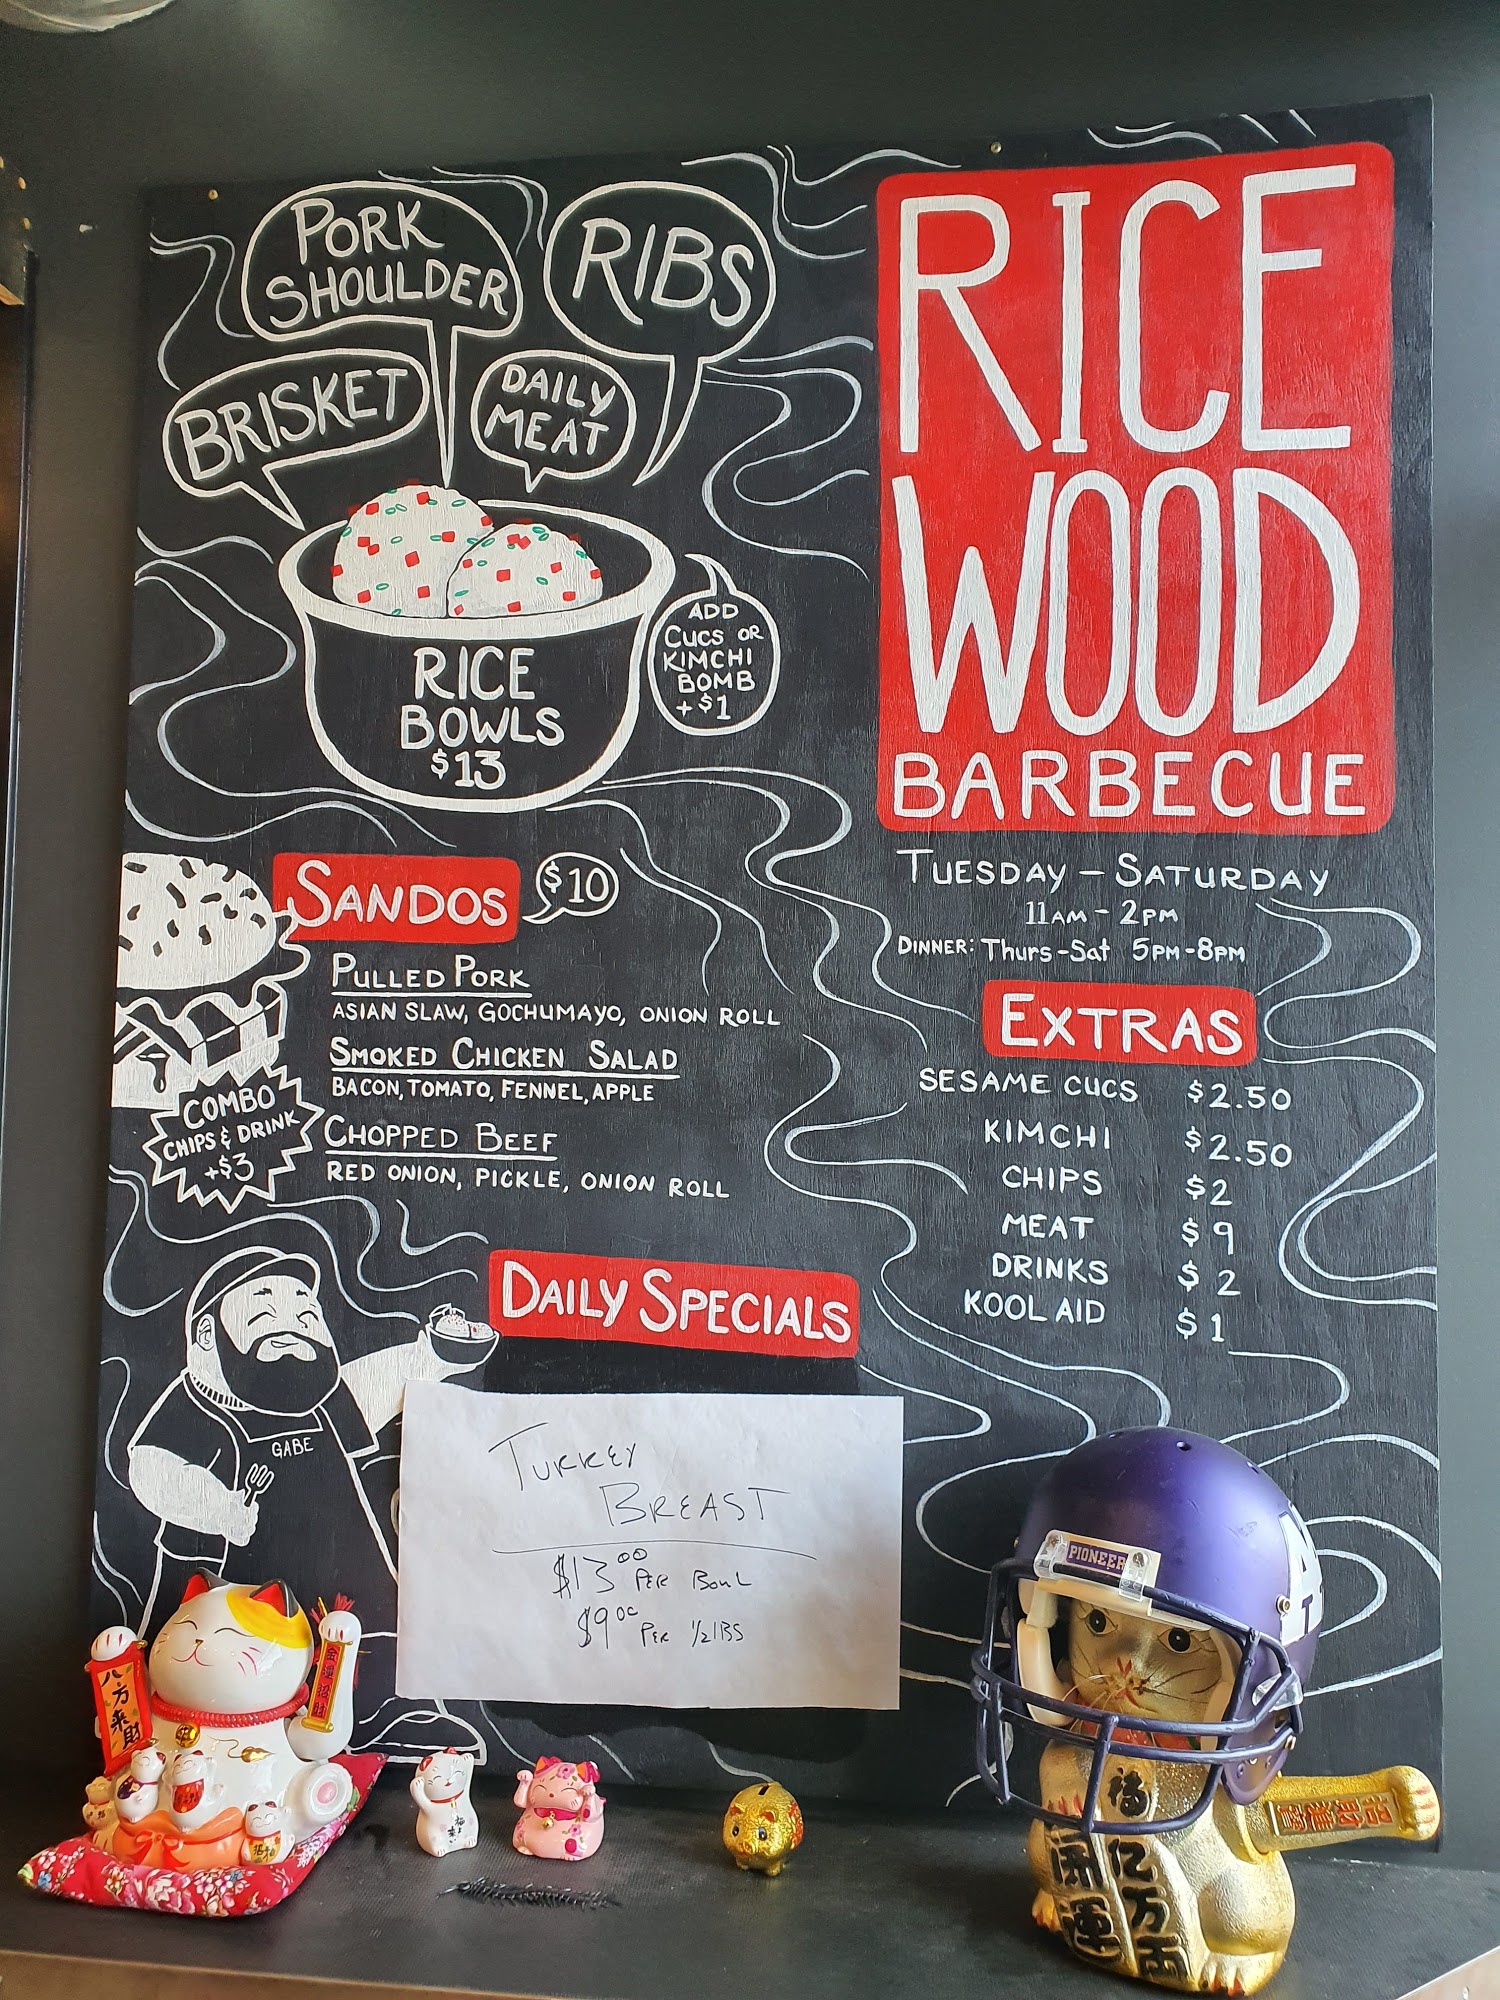 PORK
SHOULDER
RIBS
BRISKET
DAILY
MEAT
RICE
BOWLS
$13
ADD
CUCS OR
KIMCHI
BOMB
+$1
RICE
WOOD
BARBECUE
TUESDAY - SATURDAY
11AM - 2PM
DINNER: Thurs-Sat 5PM-8PM
SANDOS
$10
PULLED PORK
ASIAN SLAW, GOCHUMAYO, ONION ROLL
SMOKED CHICKEN SALAD
BACON, TOMATO, FENNEL, APPLE
CHOPPED BEEF
RED ONION, PICKLE, ONION ROLL
COMBO
CHIPS & DRINK
+$3
EXTRAS
SESAME CUCS $2.50
KIMCHI $2.50
CHIPS $2
MEAT $9
DRINKS $2
KOOL AID $1
DAILY SPECIALS
GABE
TURKEY
BREAST
$13.00 PER BOWL
$9.00 PER 1/2 lBS
PIONEER
八方来財
招財進寶
開運
福
億万両